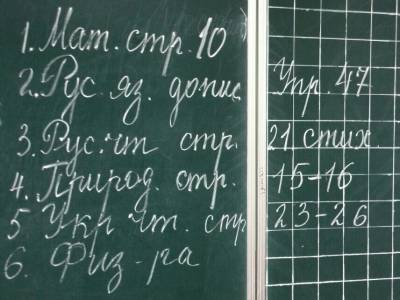 1. Мат. стр. 10
2. Рус. яз. допис. Упр. 47
3. Рус. чт. стр. 21 стих.
4. Природ. стр. 15-16
5. Укр. чт. стр 23-26
6. Физ-ра